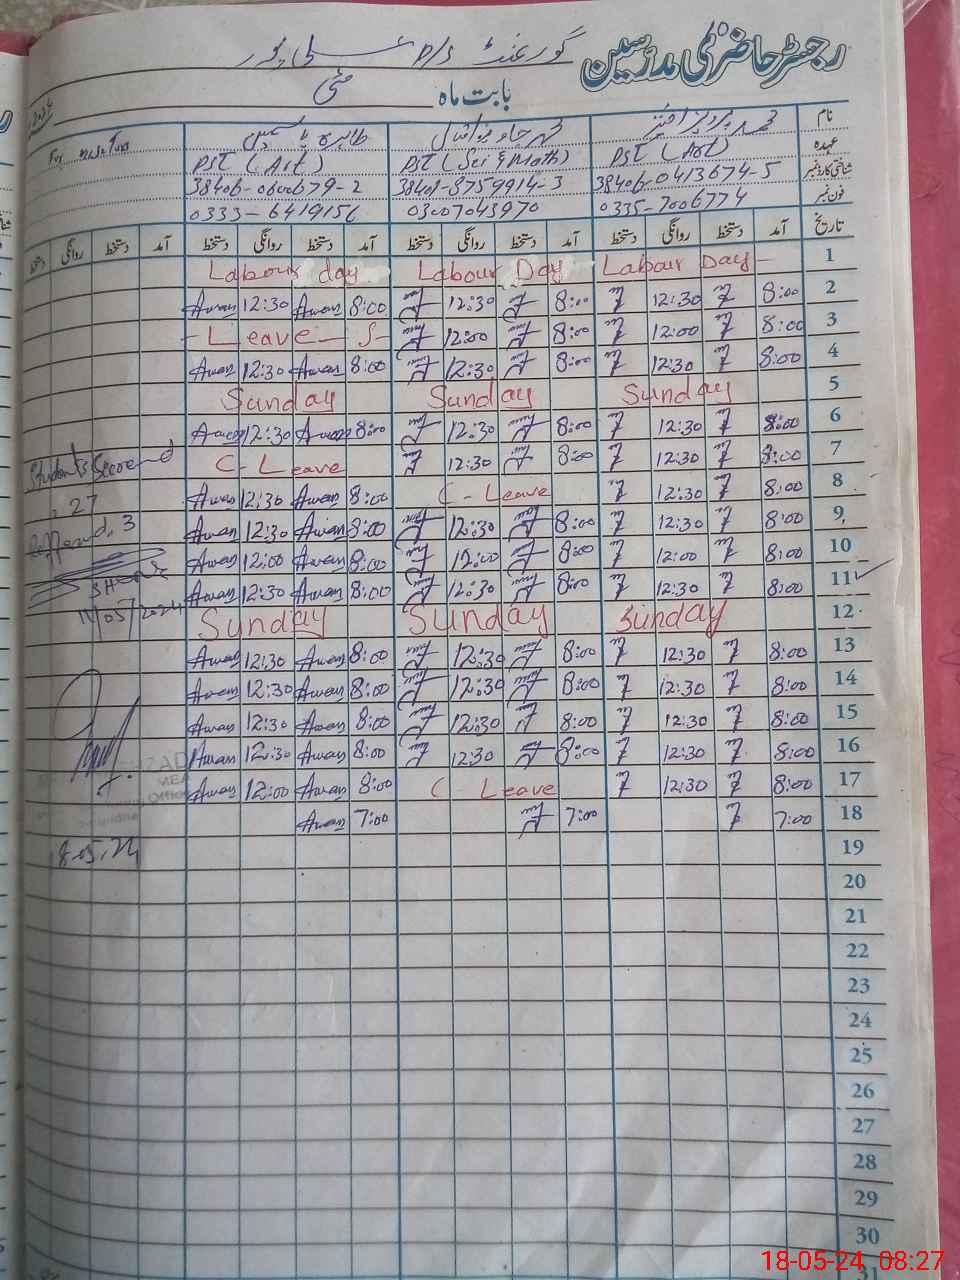 رجسٹر حاضری مدرسین
گورنمنٹ P/S
بابت ماہ مئی
نام محمد پرویز اختر محمد جاوید اقبال طاہرہ یاسمین
عہدہ PST (Art) PST (Sci & Math) PST (Art)
شناختی کارڈ نمبر 38406-0413674-5 38401-8759914-3 38406-0600679-2
فون نمبر 0335-7006774 03007043970 0333-6419156
تاریخ آمد دستخط روانگی دستخط آمد دستخط روانگی دستخط آمد دستخط روانگی دستخط آمد دستخط روانگی دستخط
1 Labour Day Labour Day Labour day
2 8:00 12:30 8:00 12:30 8:00 Awan 12:30 Awan
3 8:00 12:00 8:00 12:00 - Leave - S -
4 8:00 12:30 8:00 12:30 8:00 Awan 12:30 Awan
5 Sunday Sunday Sunday
6 8:00 12:30 8:00 12:30 8:00 Awan 12:30 Awan
7 8:00 12:30 8:00 12:30 C-Leave
8 8:00 12:30 C-Leave 8:00 Awan 12:30 Awan
9 8:00 12:30 8:00 12:30 8:00 Awan 12:30 Awan
10 8:00 12:00 8:00 12:00 8:00 Awan 12:00 Awan
11 8:00 12:30 8:00 12:30 8:00 Awan 12:30 Awan
12 Sunday Sunday Sunday
13 8:00 12:30 8:00 12:30 8:00 Awan 12:30 Awan
14 8:00 12:30 8:00 12:30 8:00 Awan 12:30 Awan
15 8:00 12:30 8:00 12:30 8:00 Awan 12:30 Awan
16 8:00 12:30 8:00 12:30 8:00 Awan 12:30 Awan
17 8:00 12:30 C-Leave 8:00 Awan 12:00 Awan
18 7:00 7:00 7:00 Awan
19
20
21
22
23
24
25
26
27
28
29
30
31
Students
27
3
14/05/2024
18.05.24
18-05-24 08:27